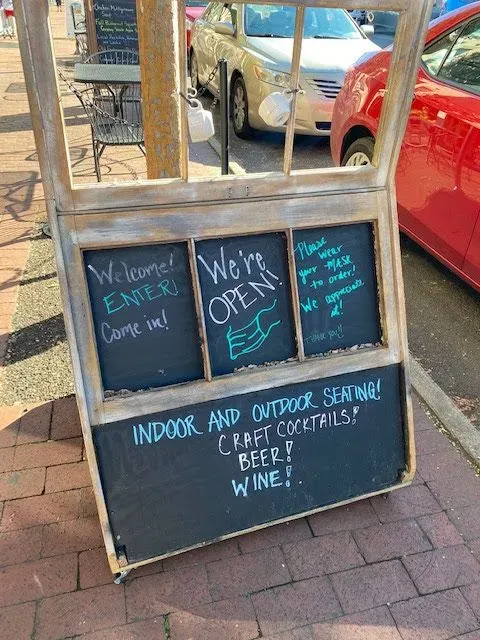 Welcome!
ENTER!
Come in!
We're
OPEN!
Please
wear
your MASK
to order!
We appreciate
it!
THANK YOU!!
INDOOR AND OUTDOOR SEATING!
CRAFT COCKTAILS!
BEER!
WINE!